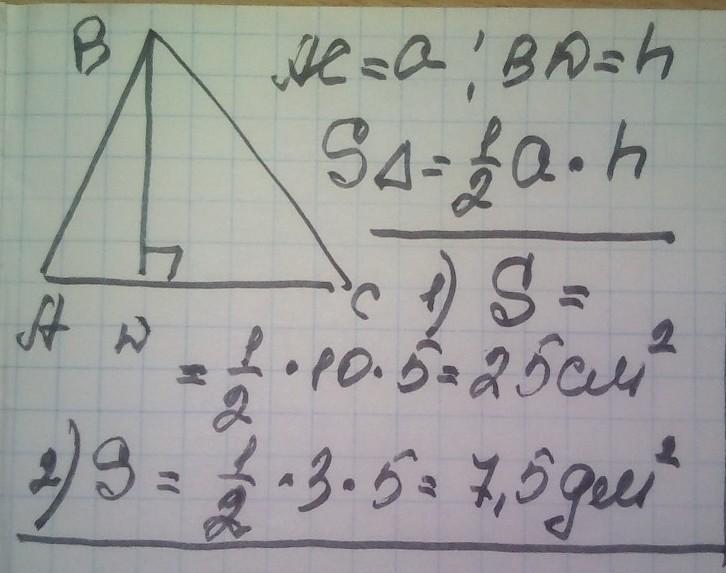 B
AC = a ; BD = h
S△ = 1/2 a · h
A D C
1) S =
= 1/2 · 10 · 5 = 25 см²
2) S = 1/2 · 3 · 5 = 7,5 дм²